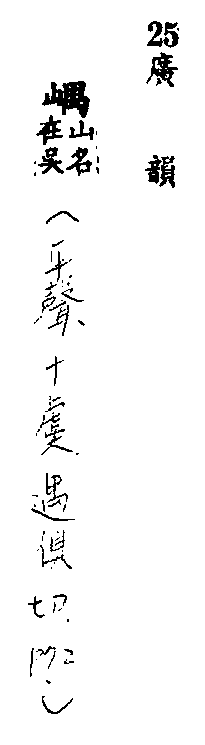 25廣韻
嵎山名在吳(平聲十虞遇俱切)